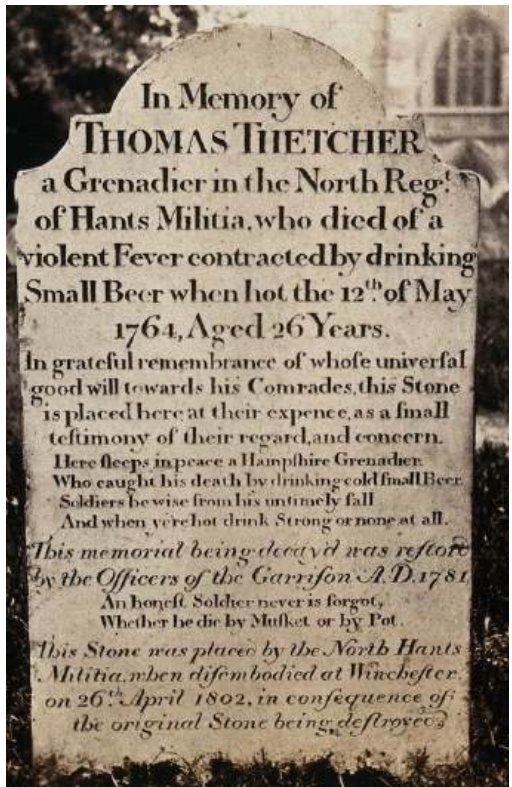 In Memory of
THOMAS THETCHER
a Grenadier in the North Reg.t
of Hants Militia, who died of a
violent Fever contracted by drinking
Small Beer when hot the 12th of May
1764, Aged 26 Years.
In grateful remembrance of whoſe univerſal
good will towards his Comrades, this Stone
is placed here at their expence, as a ſmall
teſtimony of their regard, and concern.
Here ſleeps in peace a Hampſhire Grenadier,
Who caught his death by drinking cold ſmall Beer.
Soldiers be wise from his untimely fall
And when ye're hot drink Strong or none at all.
This memorial being decay'd was reſtor'd
by the Officers of the Garriſon A.D. 1781
An honeſt Soldier never is forgot,
Whether he die by Muſket or by Pot.
This Stone was placed by the North Hants
Militia, when diſembodied at Wincheſter,
on 26th April 1802, in conſequence of
the original Stone being deſtroyed